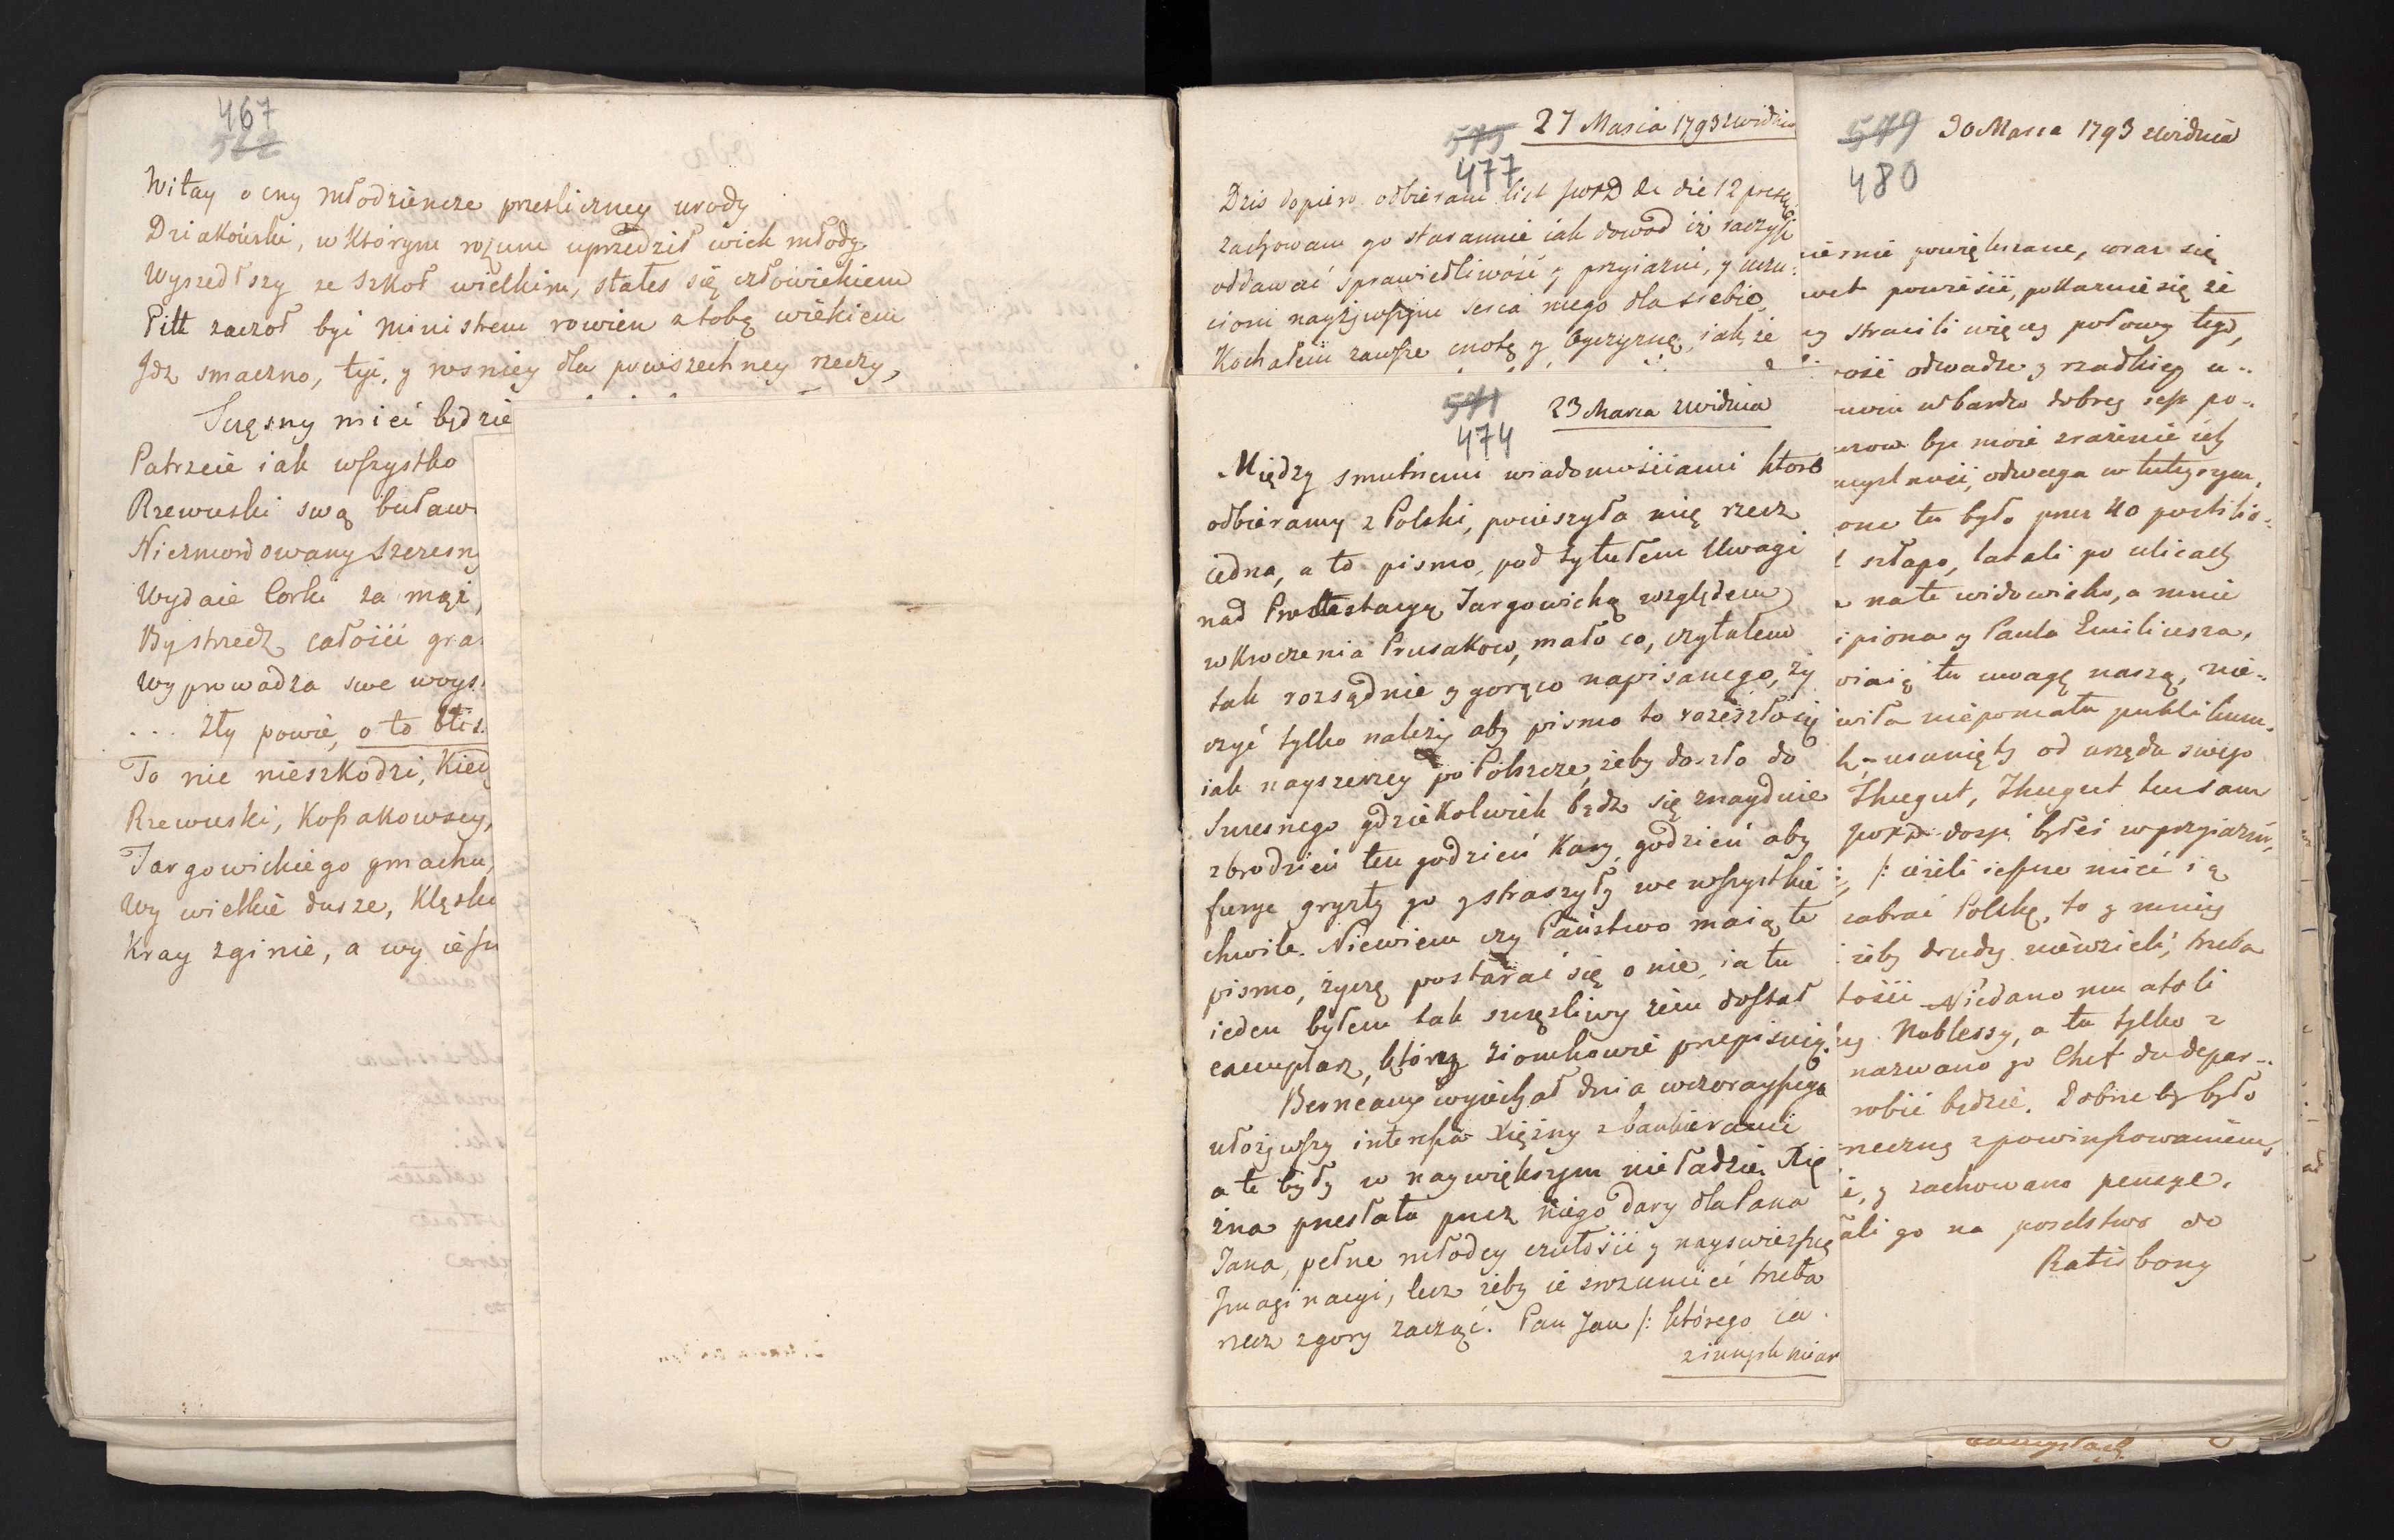 467
522
Witay o cny młodzieńcze prześliczney urody
Dziakoński, w którym rozum uprzedził wiek młody.
Wyszedłszy ze szkoł wielkim, stałeś się człowiekiem
Pitt zaczoł być Ministrem rowien z tobą wiekiem
Idz smaczno, tyi, y rosniey dla powszechney rzeczy,
Szczęsny mieć będzie
Patrzcie iak wszystko
Rzewuski swą buław
Niezmordowany Szczęsny
Wydaie Corki za mąż,
Bystrzech całości gra
Wyprowadza swe woys.
... Zły powie, o to blis.
To nie nieszkodzi, Kiedy
Rzewuski, Kossakowscy,
Targowickiego gmachu,
Wy wielkie dusze, Klęsk
Kray zginie, a wy ieste
575 27 Marca 1793 z Widnia
477
Dzis dopiero odbieram list JWPD de die 12 praes
zachowam go starannie iak dowod iż raczysz
oddawać sprawiedliwość y przyiazni, y uczu-
ciom nayżywszym serca mego dla siebie,
Kochałem zawsze cnotę y Oyczyznę, iakże
571 23 Marca z Widnia
474
Między smutnemi wiadomościami ktore
odbieramy z Polski, pocieszyła mię rzecz
iedna, a to pismo, pod tytułem Uwagi
nad Protestacyą Targowicką względem
wkroczenia Prusakow, mało co, czytałem
tak rozsądnie y gorąco napisanego, ży
czyć tylko należy aby pismo to rozeszło się
iak nayszerzey po Polszcze, żeby doszło do
Szczesnego gdziekolwiek bądz się znayduie
zbrodzień ten godzień Kary, godzień aby
furye gryzły go y straszyły we wszystkie
chwile. Niewiem czy Państwo maią te
pismo, życzę postarać się o nie, ia tu
ieden byłem tak szczęśliwy żem dostał
exemplarz, który ziomkowie przepisuią.
Berneaux wyiechał dnia wczorayszego
ułożywszy interessa Xiężny z bankierami
a te były w naywiększym nieładzie, Xię
żna przesłała przez niego dary dla Pana
Jana, pełne młodey czułości y nayswieższey
Imaginacyi, lecz żeby ie zrozumieć trzeba
rzecz zgory zacząć. Pan Jan /: którego ia
z innych miar
579 30 Marca 1793 z Widnia
480
iernie powiększane, coraz się
wet powieści, pokazuie się że
y stracili więcey połowy tego,
ości odwadze y rzadkiey u-
nowin w bardzo dobrey iest po-
urow być może zrażenie ich
mysłności, odwaga w tuteyszym,
one tu było przez 40 postilio-
szłapo, latali po ulicach
na te widowisko, a mnie
ipiona y Paula Emiliusza.
wiaią tu uwagę naszą, nie-
wiła niepomału publikum.
k, usunięty od urzędu swego
Thugut, Thugut ten sam
JWPD dosyć byłeś w przyiazni,
/: ieżeli ieszcze mieć ią
zabrać Polskę, to y mniey
żeby drudzy niewzieli, trzeba
tości Niedano mu atoli
ey Noblessy, a tu tylko z
nazwano go Chef du depar-
robić będzie. Dobrze by było
neczną z powinszowaniem,
ie, y zachowano pensye.
ali go na poselstwo do
Ratisbony